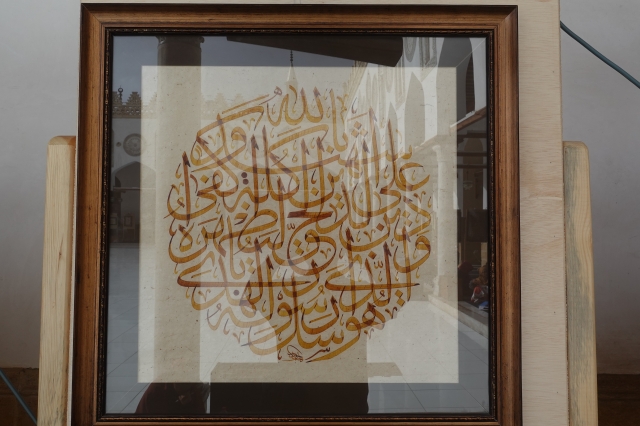 هو الذي أرسل رسوله بالهدى ودين الحق ليظهره على الدين كله وكفى بالله شهيدا